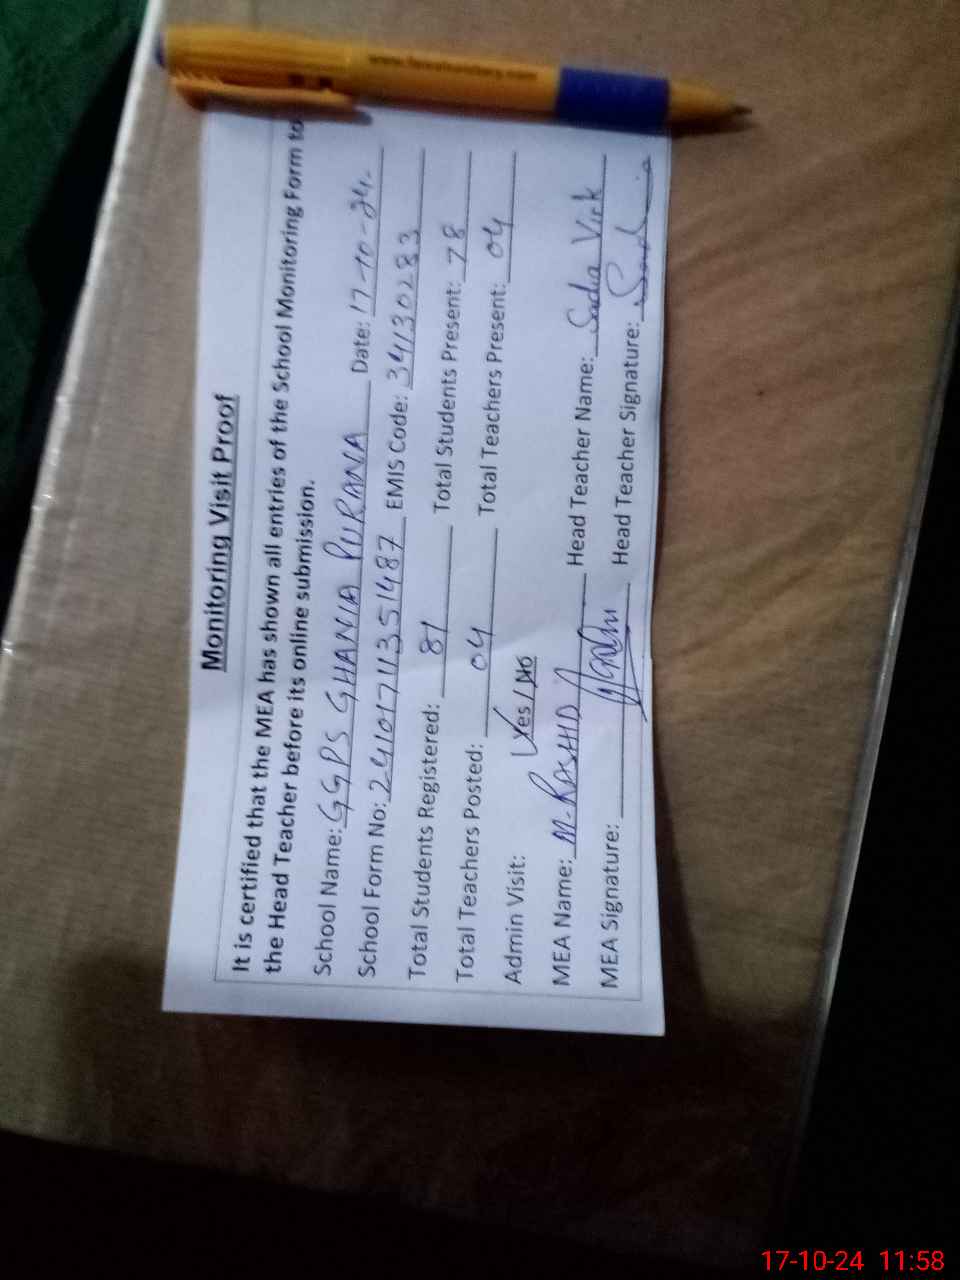 Monitoring Visit Proof
It is certified that the MEA has shown all entries of the School Monitoring Form to
the Head Teacher before its online submission.
School Name: GGPS GHANIA PURANA Date: 17-10-24.
School Form No: 24101711351487 EMIS Code: 34130283
Total Students Registered: 81 Total Students Present: 78
Total Teachers Posted: 04 Total Teachers Present: 04
Admin Visit: Yes / No
MEA Name: M. RASHID Head Teacher Name: Sadia Virk
MEA Signature: Head Teacher Signature:
17-10-24 11:58